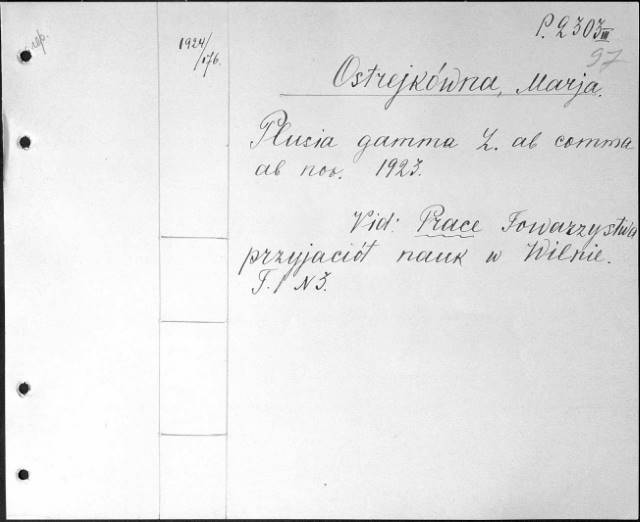 rep.
1924/176.
P. 2303 III
97
Ostrejkówna, Marja.
Plusia gamma L. ab comma
ab nov. 1923.
Vid: Prace Towarzystwa
przyjaciół nauk w Wilnie.
T. I N 3.